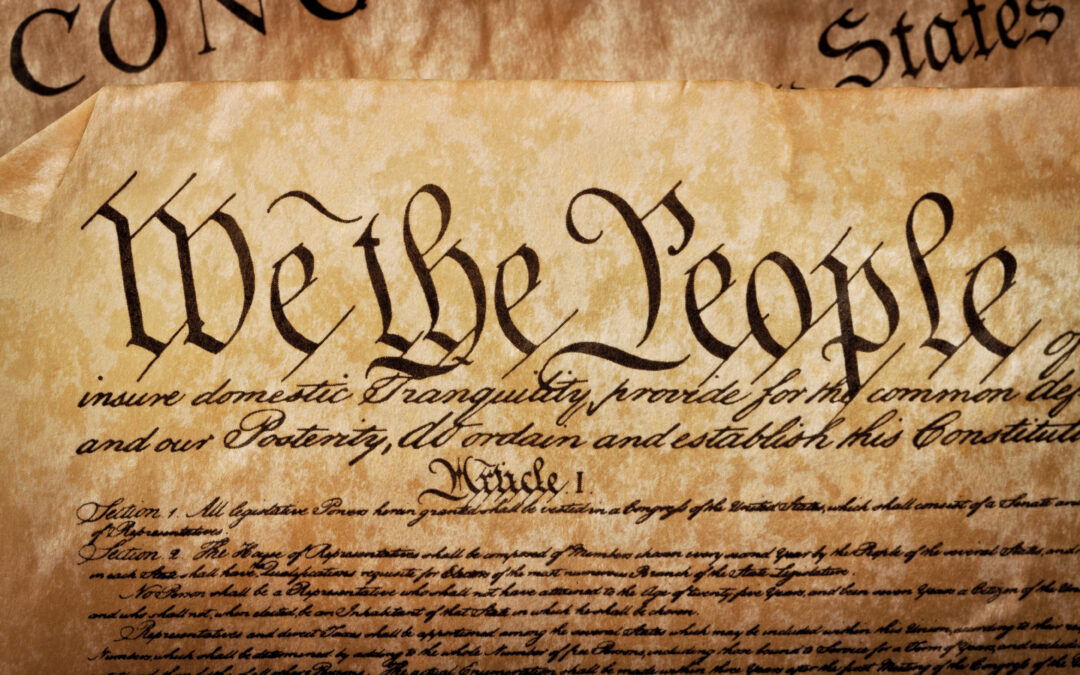 CONG
States
We the People of
insure domestic Tranquility, provide for the common def
and our Posterity, do ordain and establish this Constituti
Article I.
Section 1. All legislative Powers herein granted shall be vested in a Congress of the United States, which shall consist of a Senate and
of Representatives.
Section 2. The House of Representatives shall be composed of Members chosen every second Year by the People of the several States, and
in each State shall have the Qualifications requisite for Electors of the most numerous Branch of the State Legislature.
No Person shall be a Representative who shall not have attained to the Age of twenty five Years, and been seven Years a Citizen of the Uni
and who shall not, when elected, be an Inhabitant of that State in which he shall be chosen.
Representatives and direct Taxes shall be apportioned among the several States which may be included within this Union, according to their
Numbers, which shall be determined by adding to the whole Number of free Persons, including those bound to Service for a Term of Years, and
The actual Enumeration shall be made within three Years after the first Meeting of the Congress of the